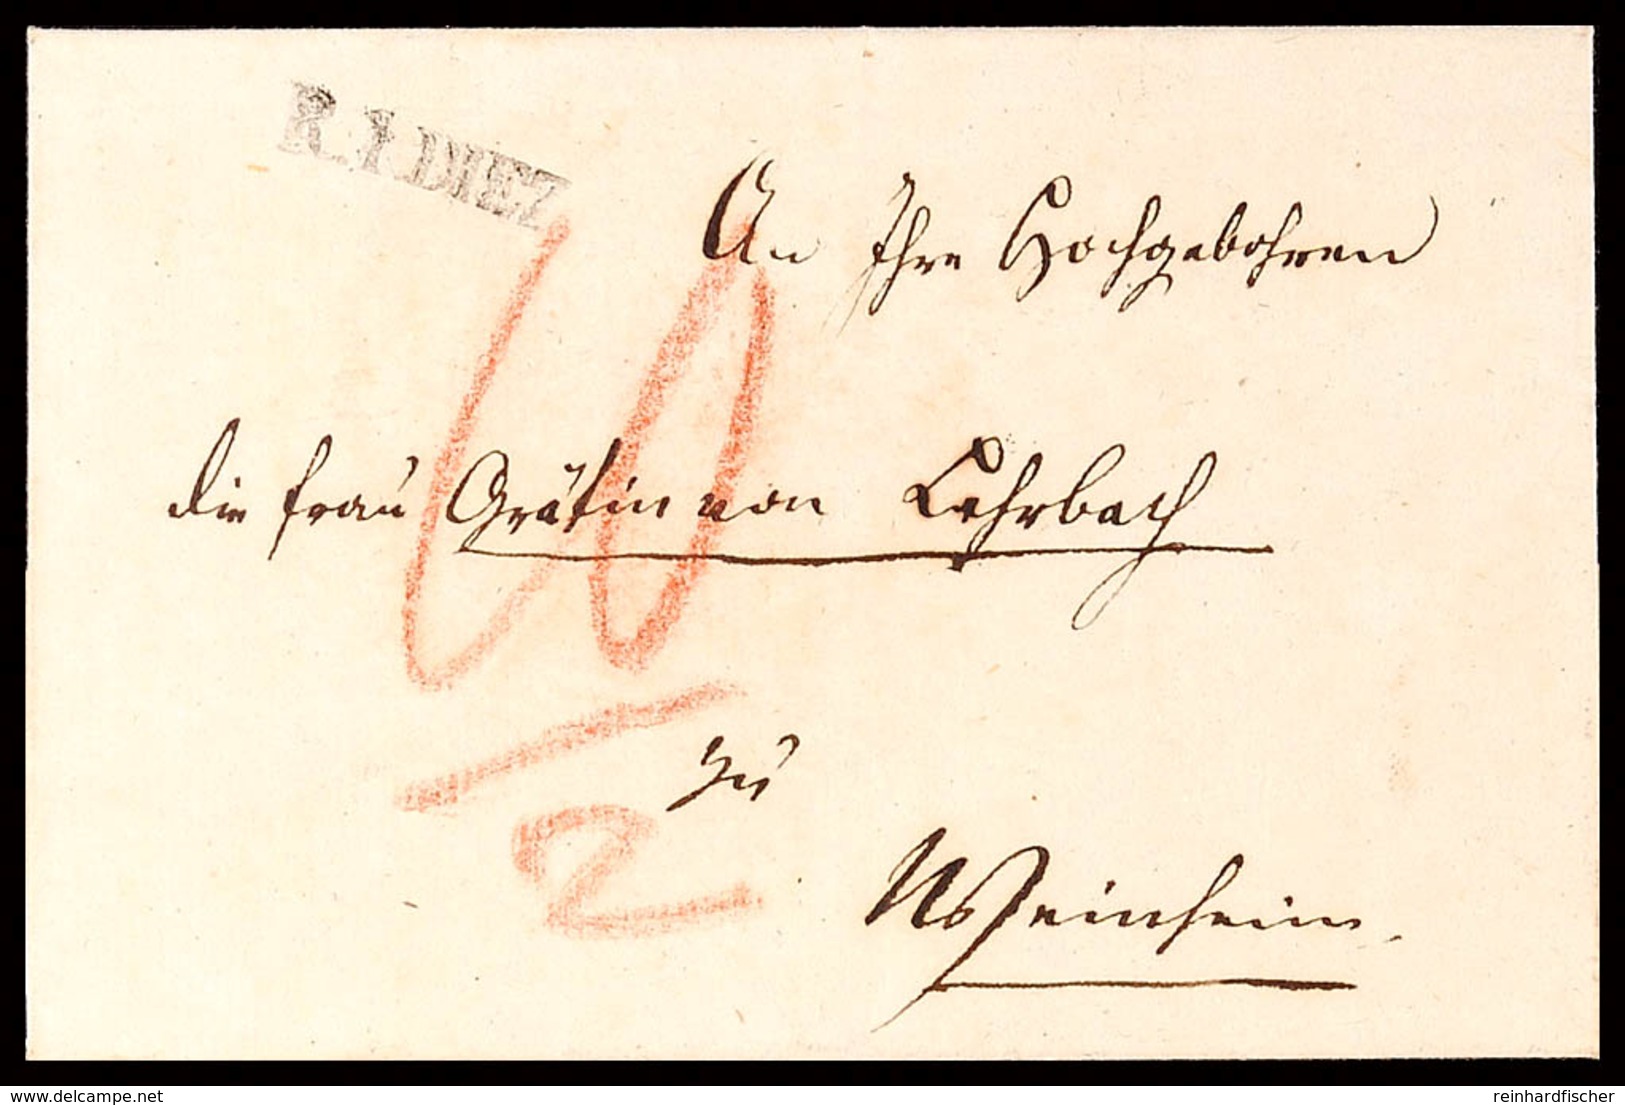 R.1.DIEZ
An Ihre Hochgebohren
die Frau Gräfin von Lehrbach
zu
Weinheim.
10
2
delcampe.net
reinhardfischer